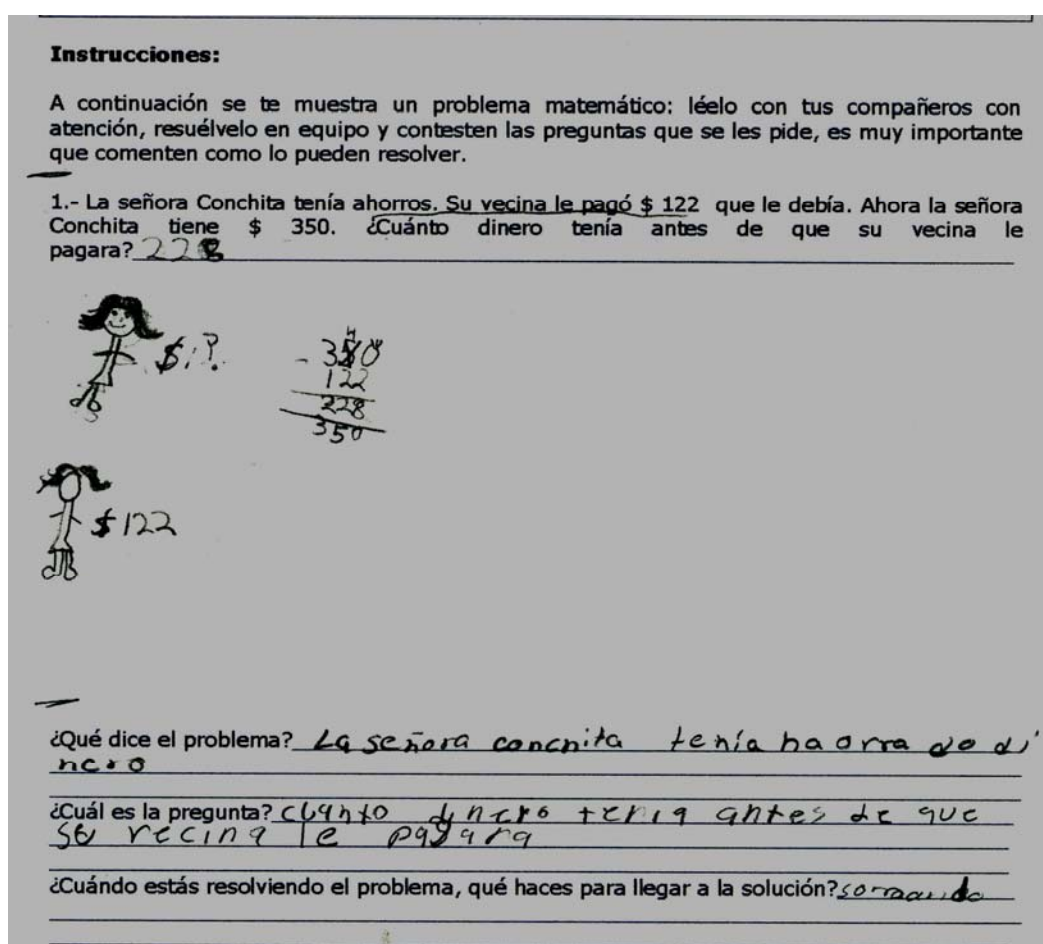 Instrucciones:
A continuación se te muestra un problema matemático: léelo con tus compañeros con
atención, resuélvelo en equipo y contesten las preguntas que se les pide, es muy importante
que comenten como lo pueden resolver.
1.- La señora Conchita tenía ahorros. Su vecina le pagó $ 122 que le debía. Ahora la señora
Conchita tiene $ 350. ¿Cuánto dinero tenía antes de que su vecina le
pagara? 228
$¿?
- 350
122
228
350
$122
¿Qué dice el problema? La señora conchita tenía haorra do di
nero
¿Cuál es la pregunta? cuanto dinero tenia antes de que
su vecina le pagara
¿Cuándo estás resolviendo el problema, qué haces para llegar a la solución?